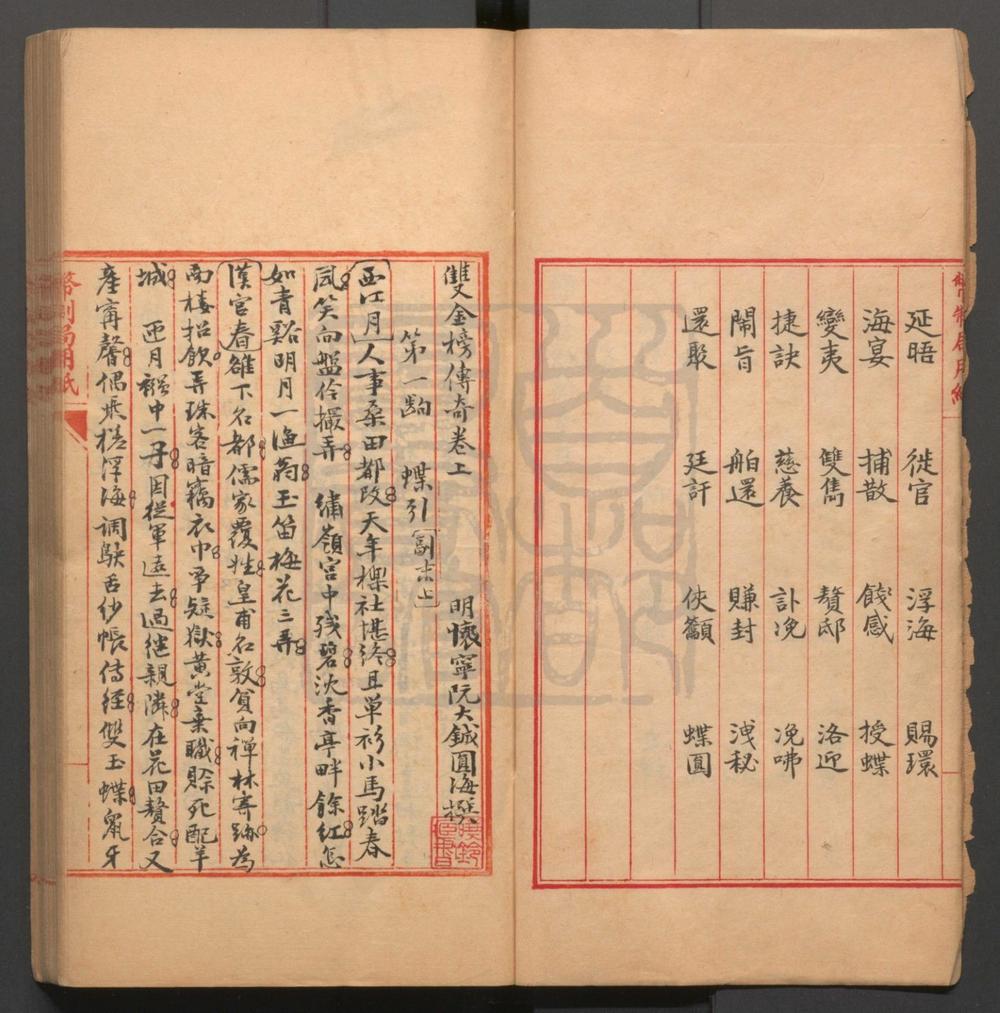 延晤 徙官 浮海 賜環
海宴 捕散 餞感 授蝶
變夷 雙雋 贅邸 洛迎
捷訣 慈養 訃冤 冤咈
鬧旨 舶還 賺封 洩秘
還聚 廷訐 俠籲 蝶圓
雙金榜傳奇卷上 明懷寧阮大鋮圓海撰
第一齣 蝶引 副末上
西江月 人事桑田都改天年櫟社堪終且單衫小馬踏春
風笑向盤伶撮弄 繡嶺宮中殘碧沈香亭畔餘紅怎
如青谿明月一漁翁玉笛梅花三弄
漢宮春 雒下名都儒家覆姓皇甫名敦貧向禪林寄跡為
南樓招飲弄珠客暗竊衣巾爭疑獄黃堂棄職賒死配羊
城 匝月襁中一子因從軍遠去過繼親鄰在花田贅合又
產寧馨偶乘槎浮海調鴃舌紗帳傳經雙玉蝶鼠牙
幣制局用紙
幣制局用紙